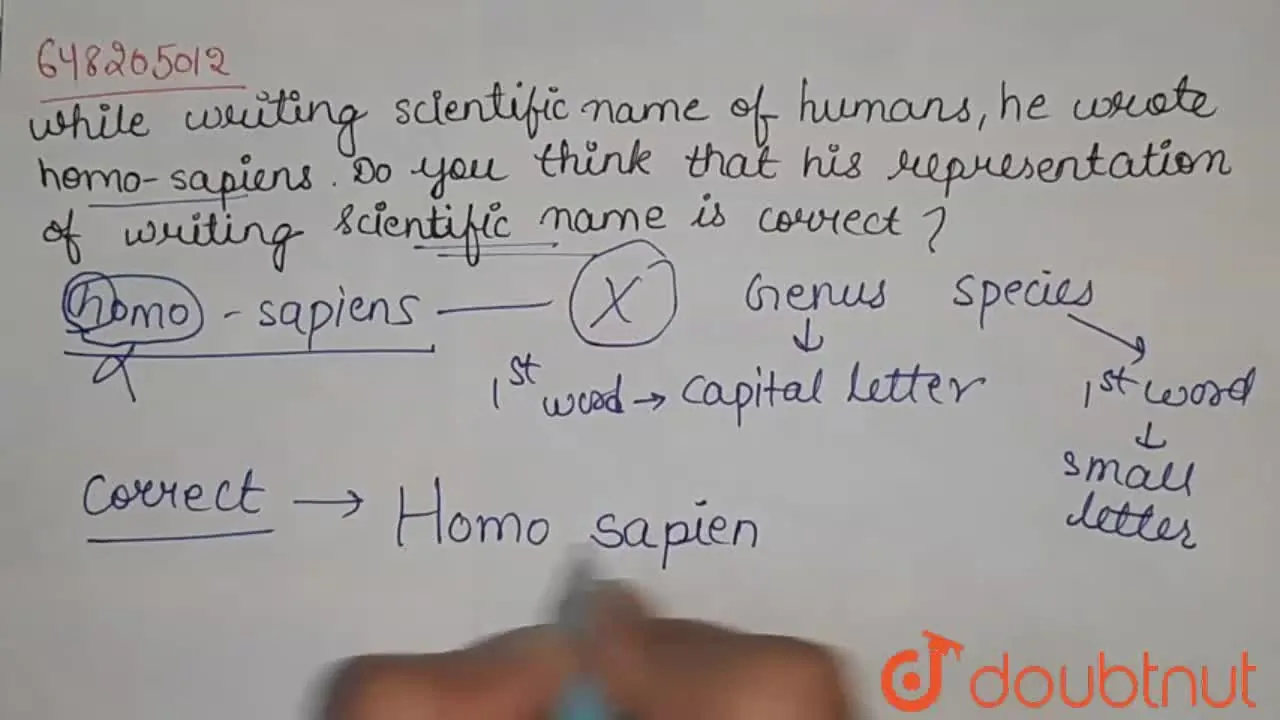 648205012
while writing scientific name of humans, he wrote
homo-sapiens. Do you think that his representation
of writing scientific name is correct?
homo - sapiens — X Genus species
1st word → capital letter 1st word
small
letter
correct → Homo sapien
doubtnut